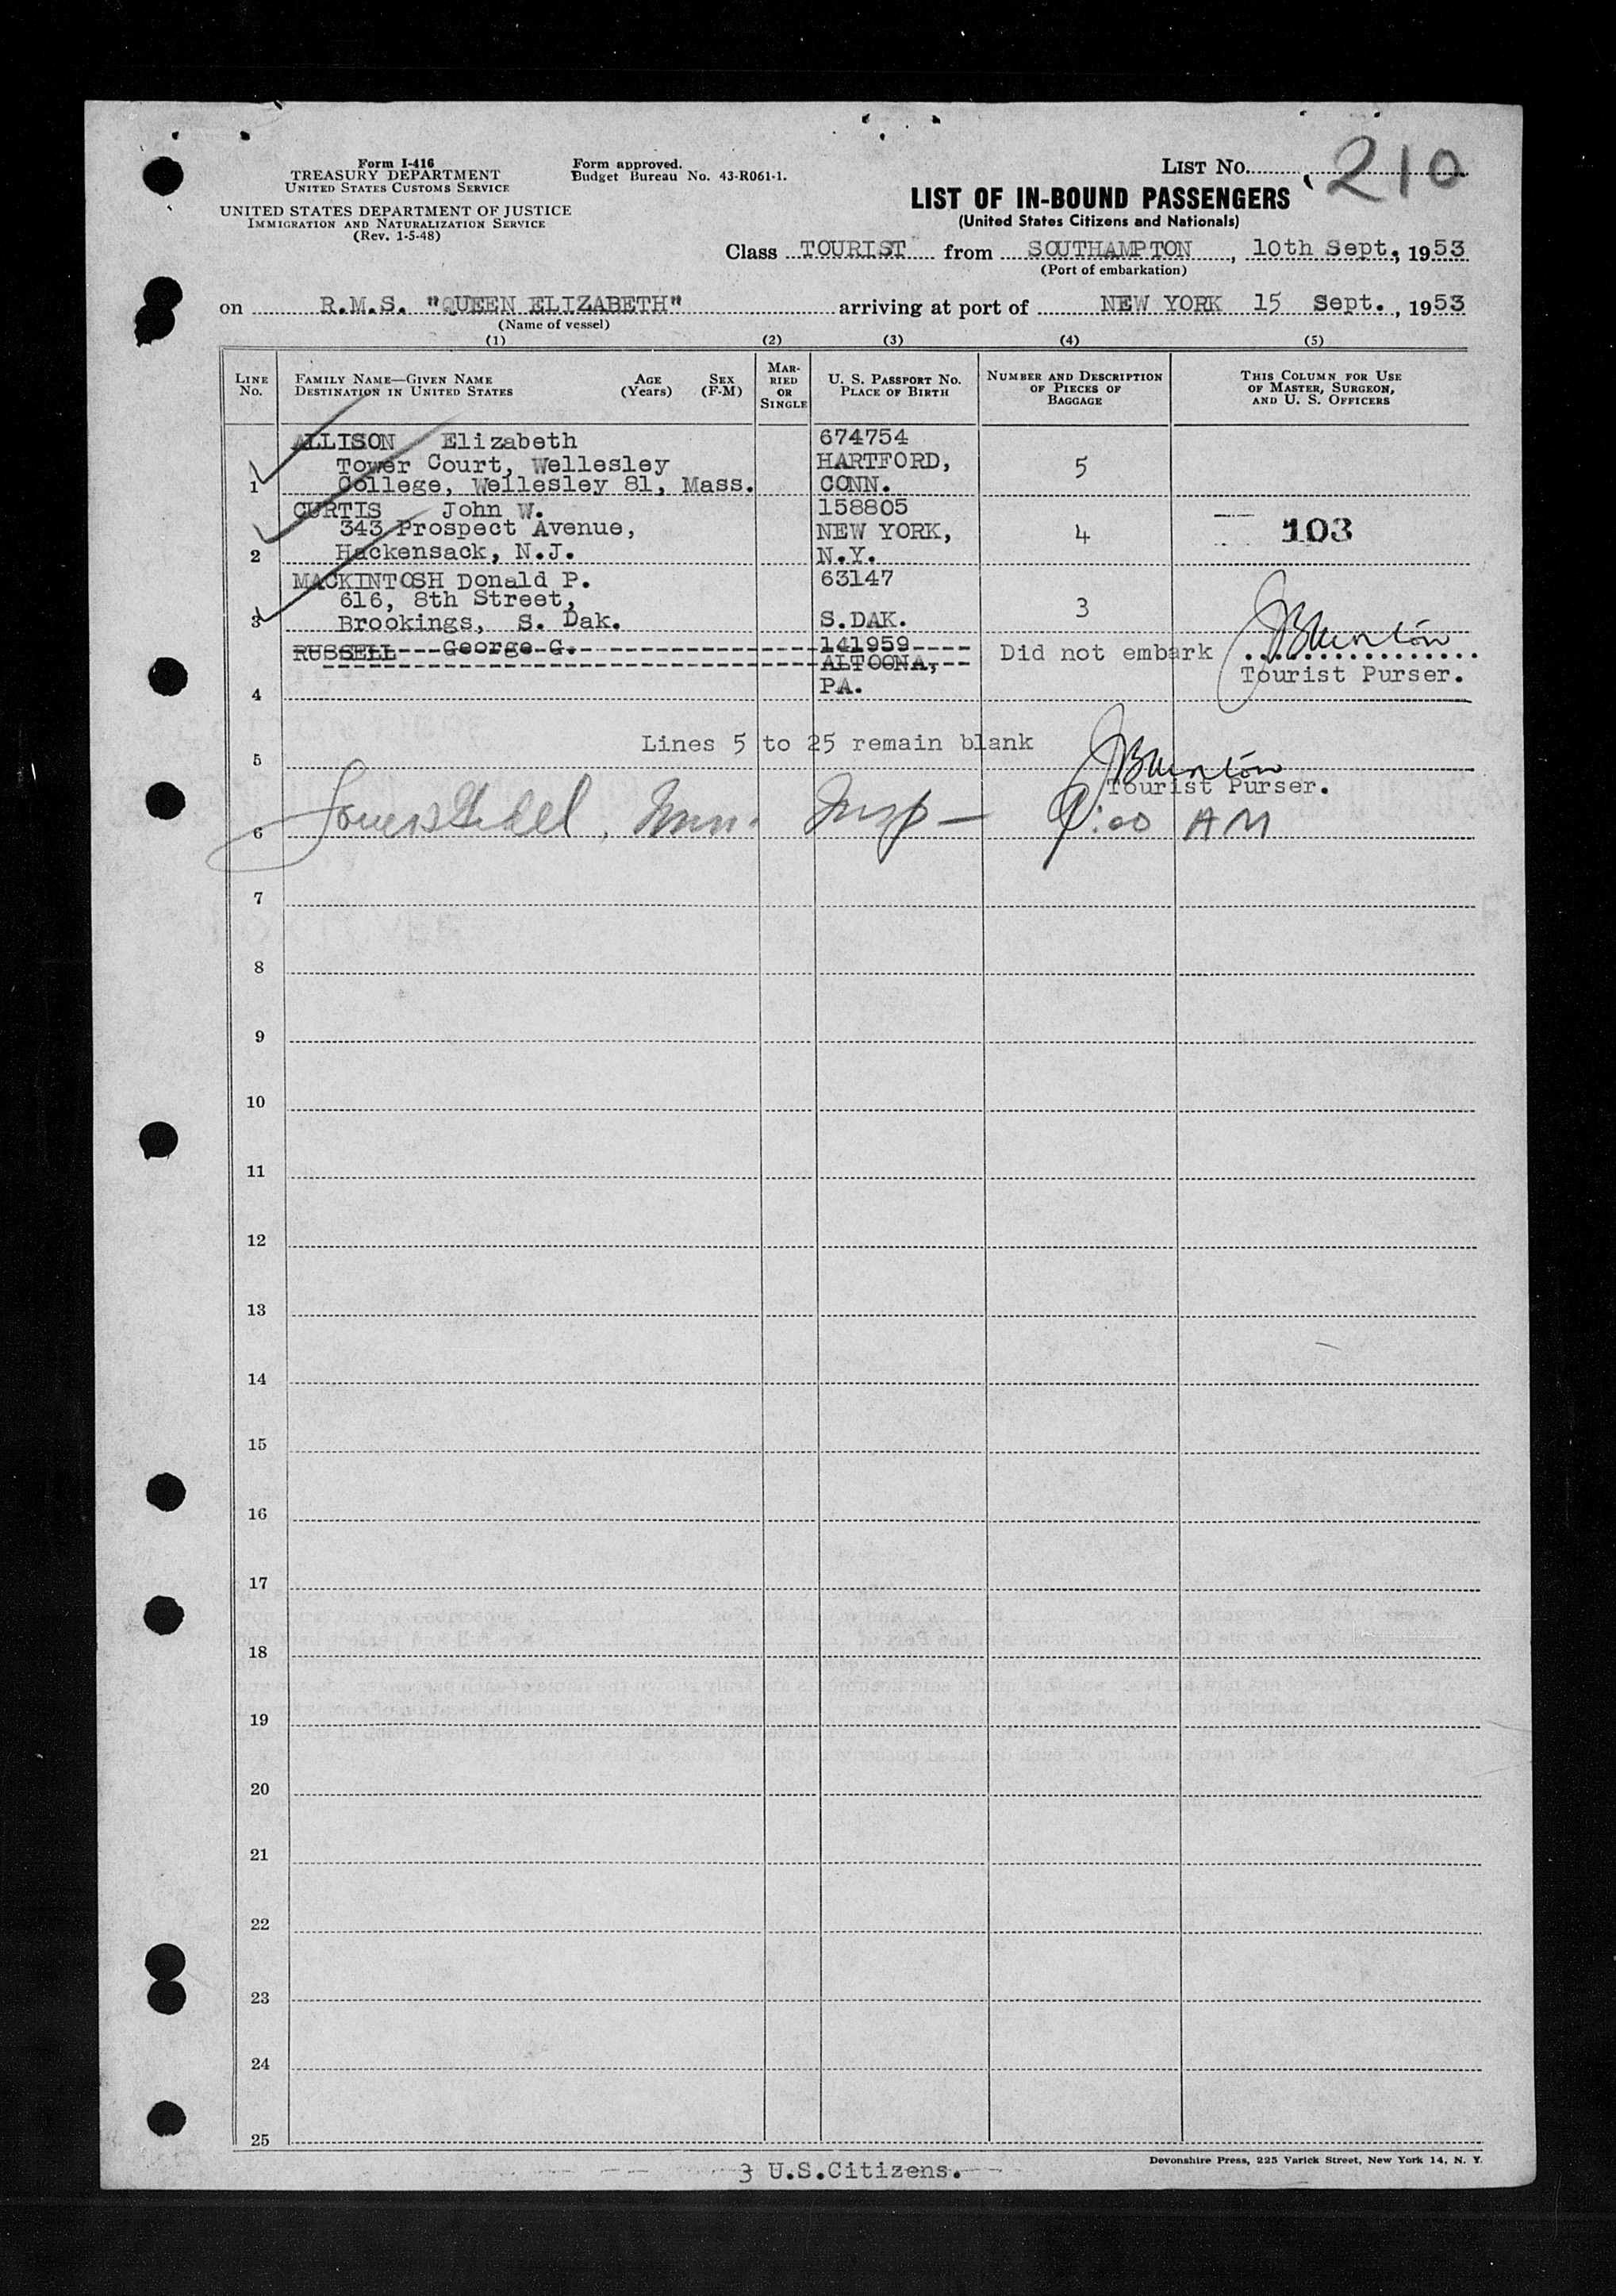 Form I-416
TREASURY DEPARTMENT
UNITED STATES CUSTOMS SERVICE
UNITED STATES DEPARTMENT OF JUSTICE
IMMIGRATION AND NATURALIZATION SERVICE
(Rev. 1-5-48)
Form approved.
Budget Bureau No. 43-R061-1.
LIST NO. 210
LIST OF IN-BOUND PASSENGERS
(United States Citizens and Nationals)
Class TOURIST from SOUTHAMPTON, 10th Sept., 1953
(Port of embarkation)
on R.M.S. "QUEEN ELIZABETH" arriving at port of NEW YORK 15 Sept., 1953
(Name of vessel)
(1) (2) (3) (4) (5)
LINE NO.
FAMILY NAME—GIVEN NAME
DESTINATION IN UNITED STATES
AGE (Years)
SEX (F-M)
MAR-RIED OR SINGLE
U. S. PASSPORT NO.
PLACE OF BIRTH
NUMBER AND DESCRIPTION OF PIECES OF BAGGAGE
THIS COLUMN FOR USE OF MASTER, SURGEON, AND U. S. OFFICERS
ALLISON Elizabeth 674754
Tower Court, Wellesley HARTFORD, 5
1 College, Wellesley 81, Mass. CONN.
CURTIS John W. 158805
343 Prospect Avenue, NEW YORK, 4 103
2 Hackensack, N.J. N.Y.
MACKINTOSH Donald P. 63147
616, 8th Street, 3
3 Brookings, S. Dak. S.DAK.
RUSSELL George G. 141959 Did not embark
ALTOONA, Tourist Purser.
4 PA.
5 Lines 5 to 25 remain blank
Tourist Purser.
6 Insp — 9:00 AM
7
8
9
10
11
12
13
14
15
16
17
18
19
20
21
22
23
24
25
3 U.S.Citizens.
Devonshire Press, 225 Varick Street, New York 14, N. Y.